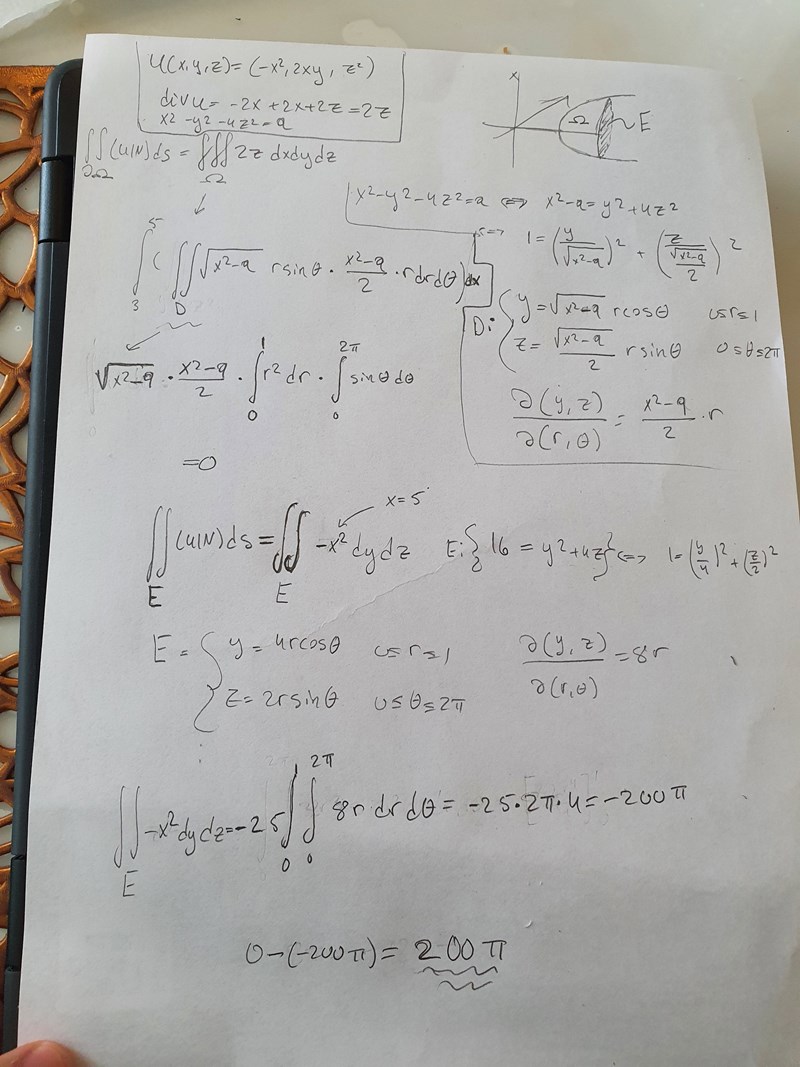 u(x,y,z) = (-x², 2xy, z²)
div u = -2x + 2x + 2z = 2z
x² - y² - 4z² = 9
∬_∂Ω (u|N) ds = ∭_Ω 2z dxdydz
x
Ω
E
x² - y² - 4z² = 9 ⇔ x² - 9 = y² + 4z²
⇔ 1 = (y/√(x²-9))² + (z/(√(x²-9)/2))²
∫_3^5 ( ∬_D √(x²-9) r sinθ · (x²-9)/2 · r dr dθ) dx
D: { y = √(x²-9) r cosθ 0 ≤ r ≤ 1
z = √(x²-9)/2 r sinθ 0 ≤ θ ≤ 2π
∂(y,z)/∂(r,θ) = (x²-9)/2 · r
√(x²-9) · (x²-9)/2 · ∫_0^1 r² dr · ∫_0^2π sinθ dθ
= 0
x = 5
∬_E (u|N) ds = ∬_E -x² dy dz E: { 16 = y² + 4z² } ⇔ 1 = (y/4)² + (z/2)²
E = { y = 4r cosθ 0 ≤ r ≤ 1
z = 2r sinθ 0 ≤ θ ≤ 2π
∂(y,z)/∂(r,θ) = 8r
∬_E -x² dy dz = -25 ∫_0^1 ∫_0^2π 8r dr dθ = -25 · 2π · 4 = -200π
0 - (-200π) = 200π